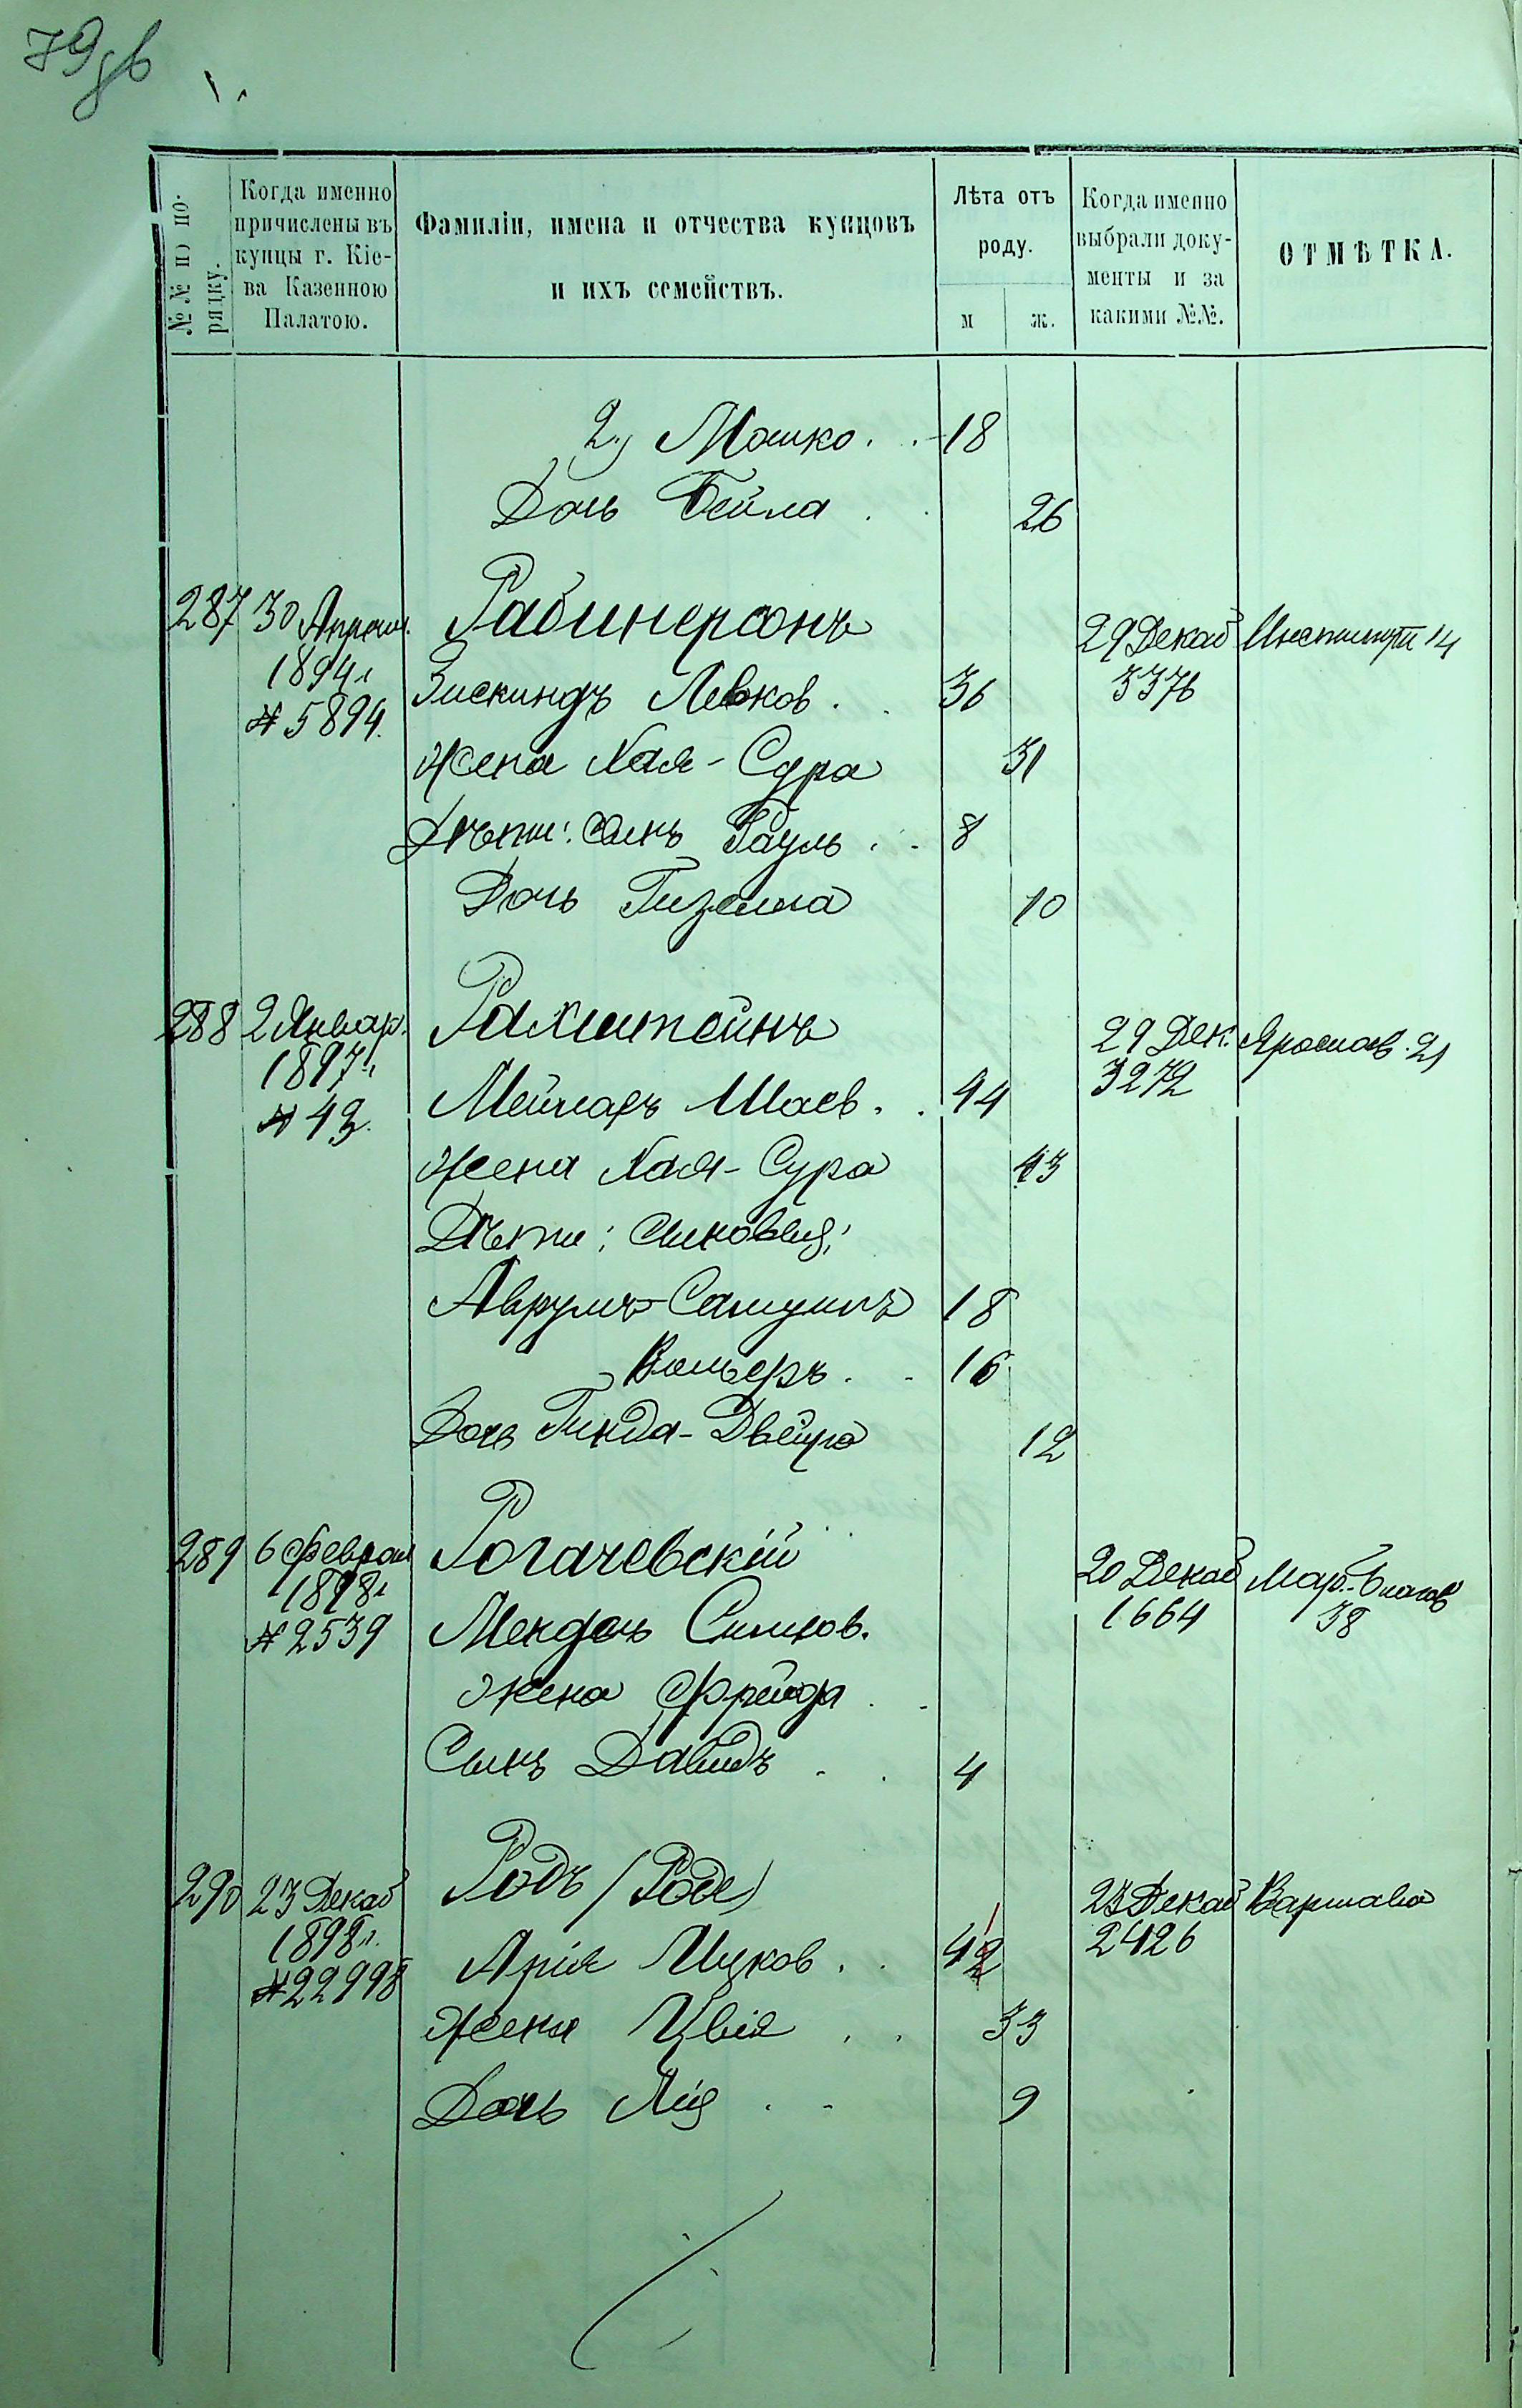 79зв
№№ по по-
рядку.
Когда именно
причислены въ
купцы г. Кіе-
ва Казенною
Палатою.
Фамиліи, имена и отчества купцовъ
и ихъ семействъ.
Лѣта отъ
роду.
м
ж.
Когда именно
выбрали доку-
менты и за
какими №№.
ОТМѢТКА.
2) Мошко . . 18
Дочь Бейла . . 26
287 30 Апрѣля Рабинерсонъ 29 Декаб Институтск 14
1894 г Зискиндъ Левков . . 36 3376
№ 5894. Жена Хая-Сура 31
Дѣти: сынъ Рауль . . 8
Дочь Гизелла 10
288 2 Январ. Рахштейнъ 29 Дек. Ярослав. 21
1897 г 3272
№ 43. Мейлахъ Шаев. . 44
Жена Хая-Сура 43
Дѣти: сыновья:
Аврумъ-Самуилъ 18
Вольфъ . . 16
Дочь Гинда-Двейра 12
289 6 Феврал Рогачевскій 20 Декаб Мар.-Благов
1898 г 1664 38
№ 2539 Мендель Симхов.
Жена Фрейда . .
Сынъ Давидъ . . 4
290 23 Декаб Родъ (Роде) 23 Декаб Варшава
1898 г. 2426
№ 22998 Арія Ицков . . 42 1
Жена Цвія . . 33
Дочь Лія . . 9